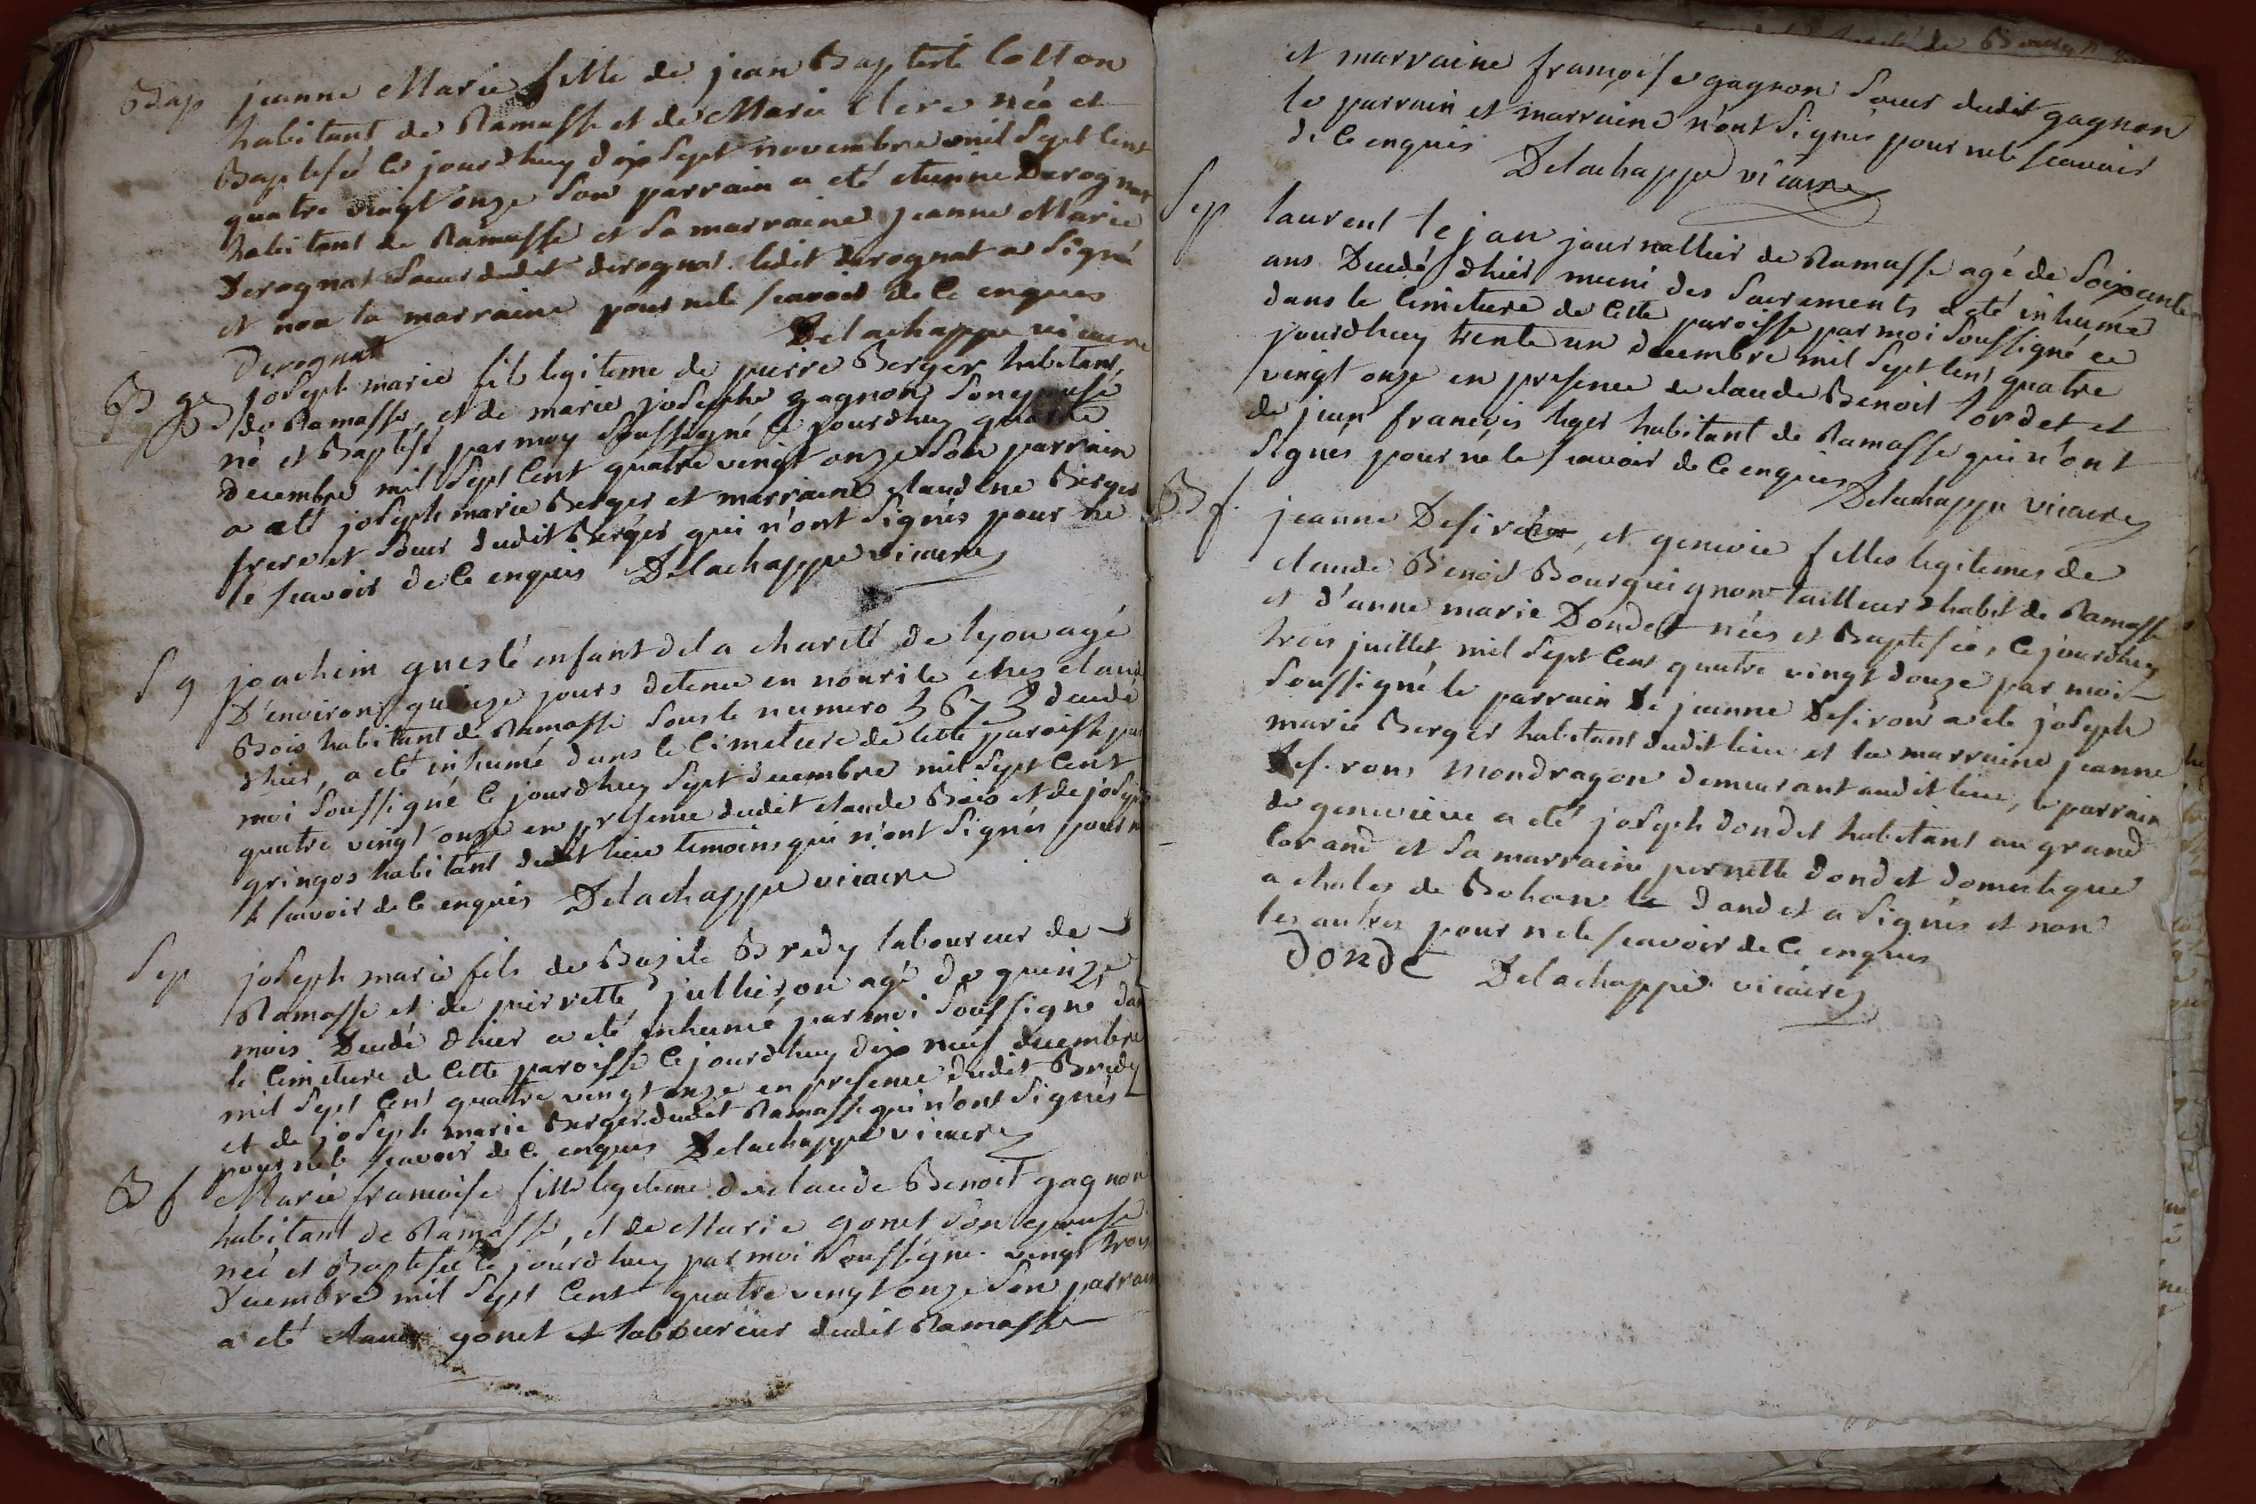 Bap jeanne Marie fille de jean Baptiste Cotton
habitant de Ramasse et de Marie Clere née et
Baptisée ce jourdhuy dix sept novembre mil sept cent
quatre vingt onze son parrain a été etienne Derognat
habitant de Ramasse et sa marraine jeanne Marie
Derognat soeur dudit derognat. ledit derognat a signé
et non la marraine pour ne le scavoir de ce enquis
Derognat Delachappe vicaire
B g joseph marie fils legiteme de pierre Berger habitant
de Ramasse, et de marie josephe gagnon son epouse
né et Baptisé par moy soussigné ce jourdhuy quatre
decembre mil sept cent quatre vingt onze son parrain
a eté joseph marie Berger et marraine claudine Berger
frere et soeur dudit Berger qui n'ont signés pour ne
le scavoir de ce enquis Delachappe vicaire
S g joachim questé enfant de la charité de lyon agé
D'environ quinze jours detenu en nourile ches claude
Bois habitant de Ramasse sous le numero 3673 decedé
dhier, a eté inhumé dans le Cimetiere de cette paroisse par
moi soussigné ce jourdhuy sept decembre mil sept cent
quatre vingt onze en presence dudit claude Bois et de joseph
gringos habitant dudit lieu temoins qui n'ont signés pour ne
le scavoir de ce enquis Delachappe vicaire
Sep joseph marie fils de Bazile Bredy laboureur de
Ramasse et de pierrette jullieron agé de quinze
mois Decedé dhier a eté inhumé par moi soussigné dans
le Cimetiere de cette paroisse ce jourdhuy dix neuf decembre
mil sept cent quatre vingt onze en presence dudit Bredy
et de joseph marie Berger dudit Ramasse qui n'ont signés
pour ne le scavoir de ce enquis Delachappe vicaire
B f Marie francoise fille legiteme de claude Benoit gagnon
habitant de Ramasse, et de Marie gonet son epouse
neé et Baptisée ce jourdhuy par moi soussigné vingt trois
Decembre mil sept Cent quatre vingt onze son parrain
a eté claude gonet et laboureur dudit Ramasse
et marraine françoise gagnon soeur dudit gagnon
le parrain et marraine n'ont signés pour ne le scavoir
de ce enquis Delachappe vicaire
Sep laurent tejan journallier de Ramasse agé de soixante
ans Decedé dhier muni des sacrements a eté inhumé
dans le Cimetiere de cette paroisse par moi soussigné ce
jourdhuy trente un decembre mil sept cent quatre
vingt onze en presence de claude Benoit Cordet et
de jean françois liger habitant de Ramasse qui n'ont
signés pour ne le scavoir de ce enquis Delachappe vicaire
B f. jeanne Desirée, et genevie filles legitemes de
claude Benoit Bourguignon tailleur d'habit de Ramasse
et d'anne marie Dondet neés et Baptiseés, ce jourdhuy
trois juillet mil sept cent quatre vingt douze par moi
soussigné le parrain de jeanne Desiron a ete joseph
marie Berger habitant dudit lieu et la marraine jeanne
Desirons Mondragon demeurant audit lieu, le parrain
de genevieve a eté joseph dondet habitant au grand
Corand et sa marraine pernette dondet domestique
a chales de Bohan le dandet a signés et non
les autres pour ne le scavoir de ce enquis
DONDE Delachappe vicaire